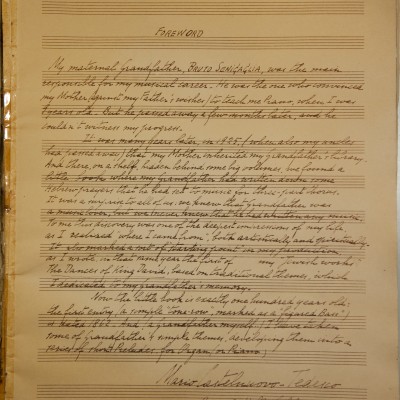 FOREWORD
My maternal Grandfather, BRUTO SENIGAGLIA, was the main
responsible for my musical career. He was the one who convinced
my Mother (against my Father's wishes) to teach me Piano, when I was
years old. But he passed away a few months later, and he
couldn't witness my progress.
It was many years later, in 1925, (when also my
had passed away) that my Mother inherited my Grandfather's library.
And there, on a shelf, hidden behind some big volumes, we found a
little book where my Grandfather had written down some
Hebrew prayers that he had set to music for three-part chorus.
It was a surprise to all of us: we knew that Grandfather was
a music lover, but we never knew that he had written any music.
To me this discovery was one of the deepest emotions of my life,
as I realized where I "came from", both artistically and spiritually.
It also marked a sort of starting point in my production
as I wrote in that same year the first of my "Jewish works"
The Dances of King David, based on traditional themes, which
I dedicated to my grandfather's memory.
Now the little book is exactly one hundred years old:
the first entry, a simple "tone row", marked as a "figured Bass")
is dated 1864. And, a grandfather myself, I have taken
some of Grandfather's simple themes, developing them into a
series of short Preludes for Organ, or Piano.
Mario Castelnuovo-Tedesco